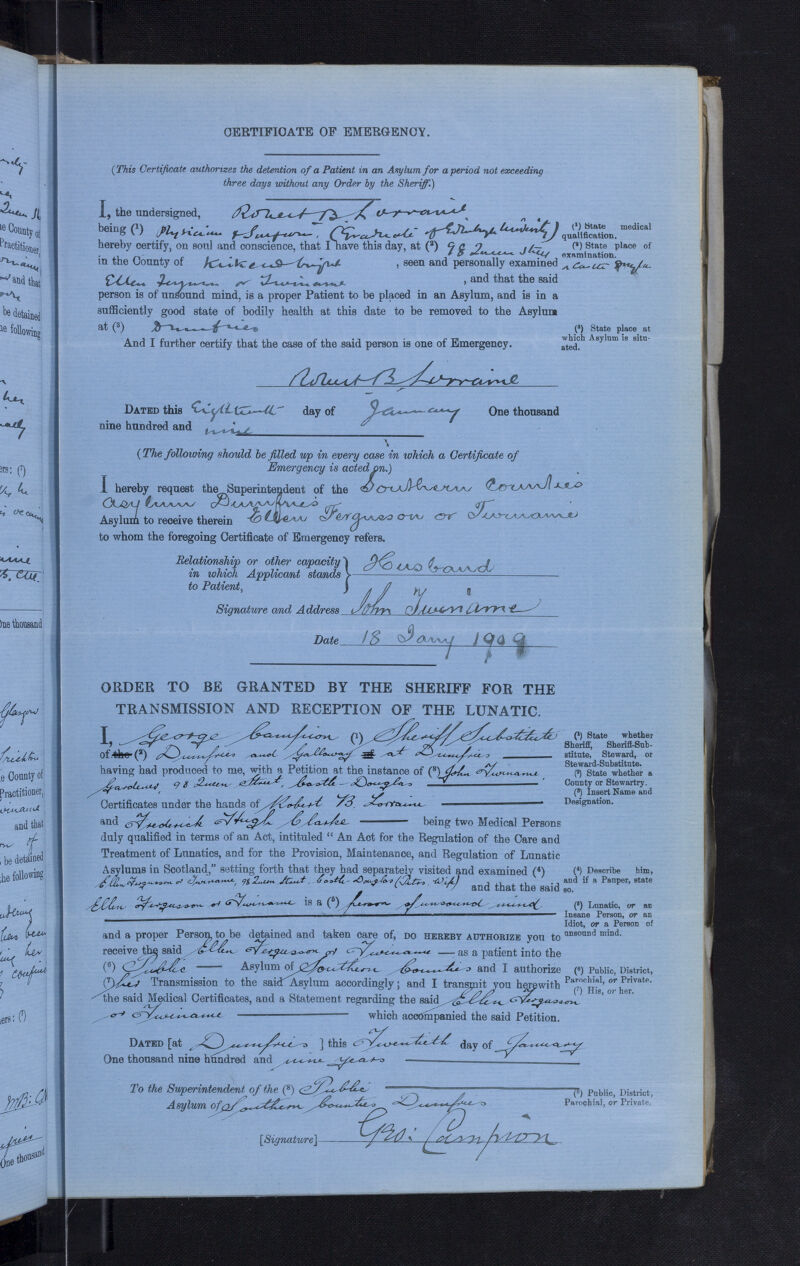 CERTIFICATE OF EMERGENCY.
(This Certificate authorizes the detention of a Patient in an Asylum for a period not exceeding
three days without any Order by the Sheriff.)
I, the undersigned, Robert B. Lorraine
being (1) Physician & Surgeon. (Graduate of Edinburgh University)
(1) State medical
qualification.
hereby certify, on soul and conscience, that I have this day, at (2) 98 Queen Street
(2) State place of
examination.
in the County of Kirkcudbright, seen and personally examined
Castle Douglas
Ellen Ferguson or Twiname, and that the said
person is of unsound mind, is a proper Patient to be placed in an Asylum, and is in a
sufficiently good state of bodily health at this date to be removed to the Asylum
at (3) Dumfries
(3) State place at
which Asylum is situ-
ated.
And I further certify that the case of the said person is one of Emergency.
Robert B Lorraine
DATED this Eighteenth day of January One thousand
nine hundred and nine
(The following should be filled up in every case in which a Certificate of
Emergency is acted on.)
I hereby request the Superintendent of the Southern Counties
Asylum Dumfries
Asylum to receive therein Ellen Fergusson or Twiname
to whom the foregoing Certificate of Emergency refers.
Relationship or other capacity
in which Applicant stands
to Patient, } Husband
Signature and Address John Twiname
Date 18 Jany 1909
ORDER TO BE GRANTED BY THE SHERIFF FOR THE
TRANSMISSION AND RECEPTION OF THE LUNATIC.
I, George Campion (1) Sheriff Substitute
of the (2) Dumfries and Galloway at Dumfries
(1) State whether
Sheriff, Sheriff-Sub-
stitute, Steward, or
Steward-Substitute.
having had produced to me, with a Petition at the instance of (3) John Twiname,
Gardener, 98 Queen Street, Castle-Douglas
(2) State whether a
County or Stewartry.
(3) Insert Name and
Designation.
Certificates under the hands of Robert B. Lorraine
and Frederick Hugh Clarke being two Medical Persons
duly qualified in terms of an Act, intituled “ An Act for the Regulation of the Care and
Treatment of Lunatics, and for the Provision, Maintenance, and Regulation of Lunatic
Asylums in Scotland,” setting forth that they had separately visited and examined (4)
Ellen Fergusson or Twiname, 98 Queen Street, Castle-Douglas (Petrs. Wife) and that the said
(4) Describe him,
and if a Pauper, state
so.
Ellen Fergusson or Twiname is a (5) person of unsound mind
(5) Lunatic, or an
Insane Person, or an
Idiot, or a Person of
unsound mind.
and a proper Person to be detained and taken care of, DO HEREBY AUTHORIZE you to
receive the said Ellen Fergusson or Twiname as a patient into the
(6) Public Asylum of Southern Counties and I authorize
(6) Public, District,
Parochial, or Private.
(7) her Transmission to the said Asylum accordingly; and I transmit you herewith
(7) His, or her.
the said Medical Certificates, and a Statement regarding the said Ellen Fergusson
or Twiname which accompanied the said Petition.
DATED [at Dumfries ] this Twentieth day of January
One thousand nine hundred and nine years
To the Superintendent of the (8) Public
Asylum of Southern Counties Dumfries
(8) Public, District,
Parochial, or Private.
[Signature] Geo: Campion